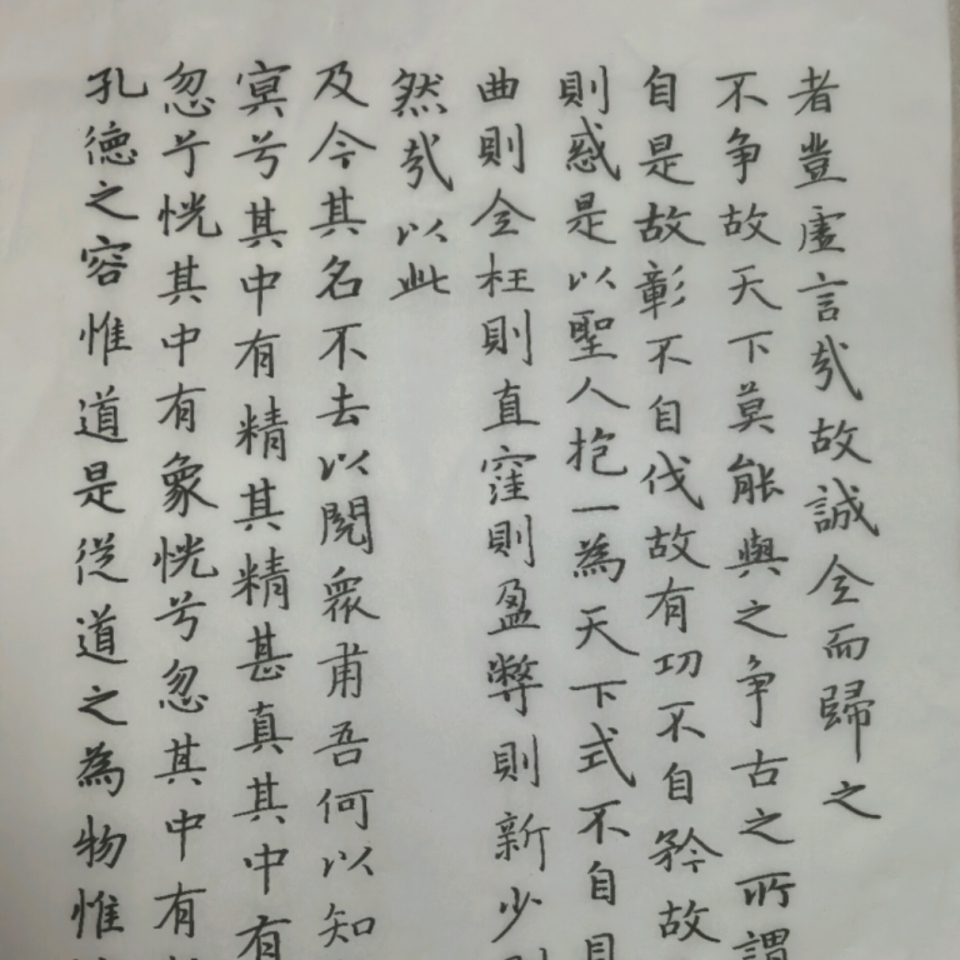 孔德之容惟道是從道之為物惟
忽兮恍其中有象恍兮忽其中有
冥兮其中有精其精甚真其中有
及今其名不去以閱衆甫吾何以知
然哉以此
曲則全枉則直窪則盈弊則新少
則惑是以聖人抱一為天下式不自
自是故彰不自伐故有功不自矜故
不争故天下莫能與之争古之所謂
者豈虛言哉故誠全而歸之